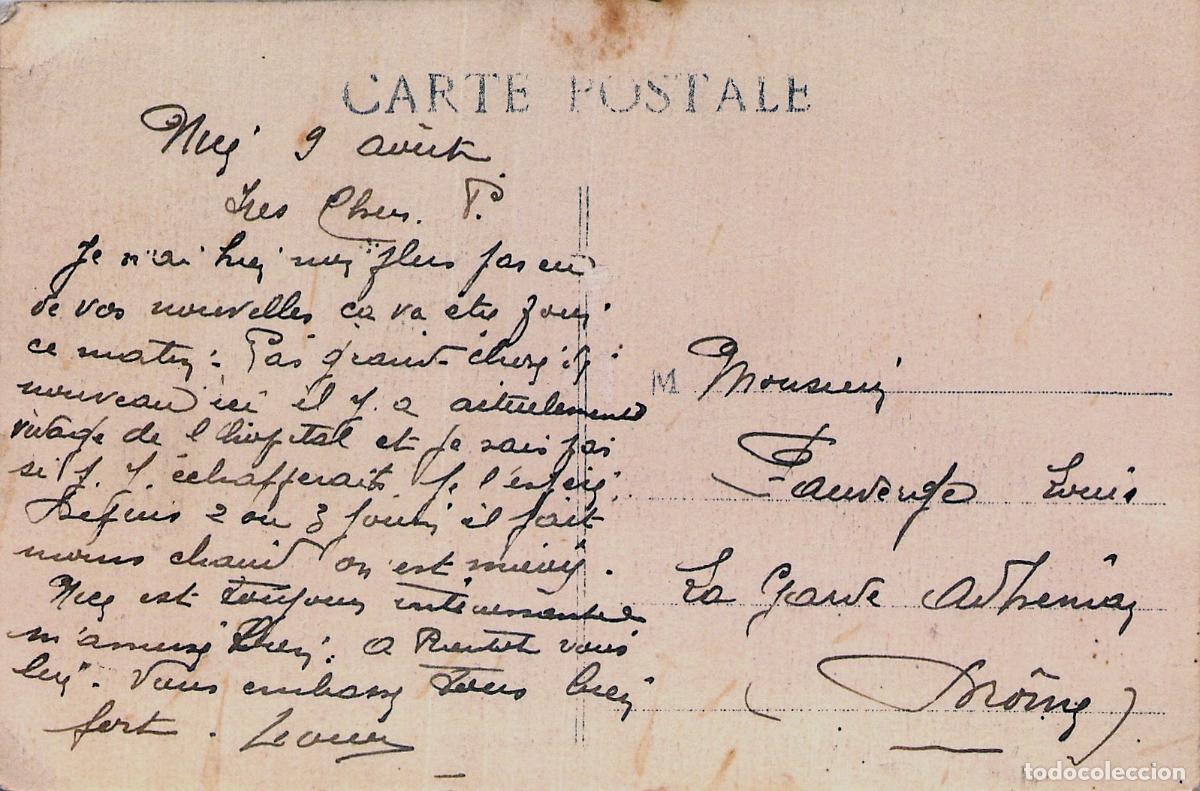 CARTE POSTALE
Nice 9 août
Très Chers. P.
Je n'ai hier non plus pas eu
de vos nouvelles ça va être pour
ce matin. Pas grand chose de
nouveau ici il y a actuelement
visite de l'hopital et je sais pas
si j'y échapperait, je l'espère.
Depuis 2 ou 3 jours il fait
moins chaud on est mieux.
Nice est toujours intéressante
m'amuse bien. A Bientot vous
lire. Vous embasse tous bien
fort.
M Monsieur
Fauverge Louis
La Garde Adhémar
(Drôme)
todocoleccion